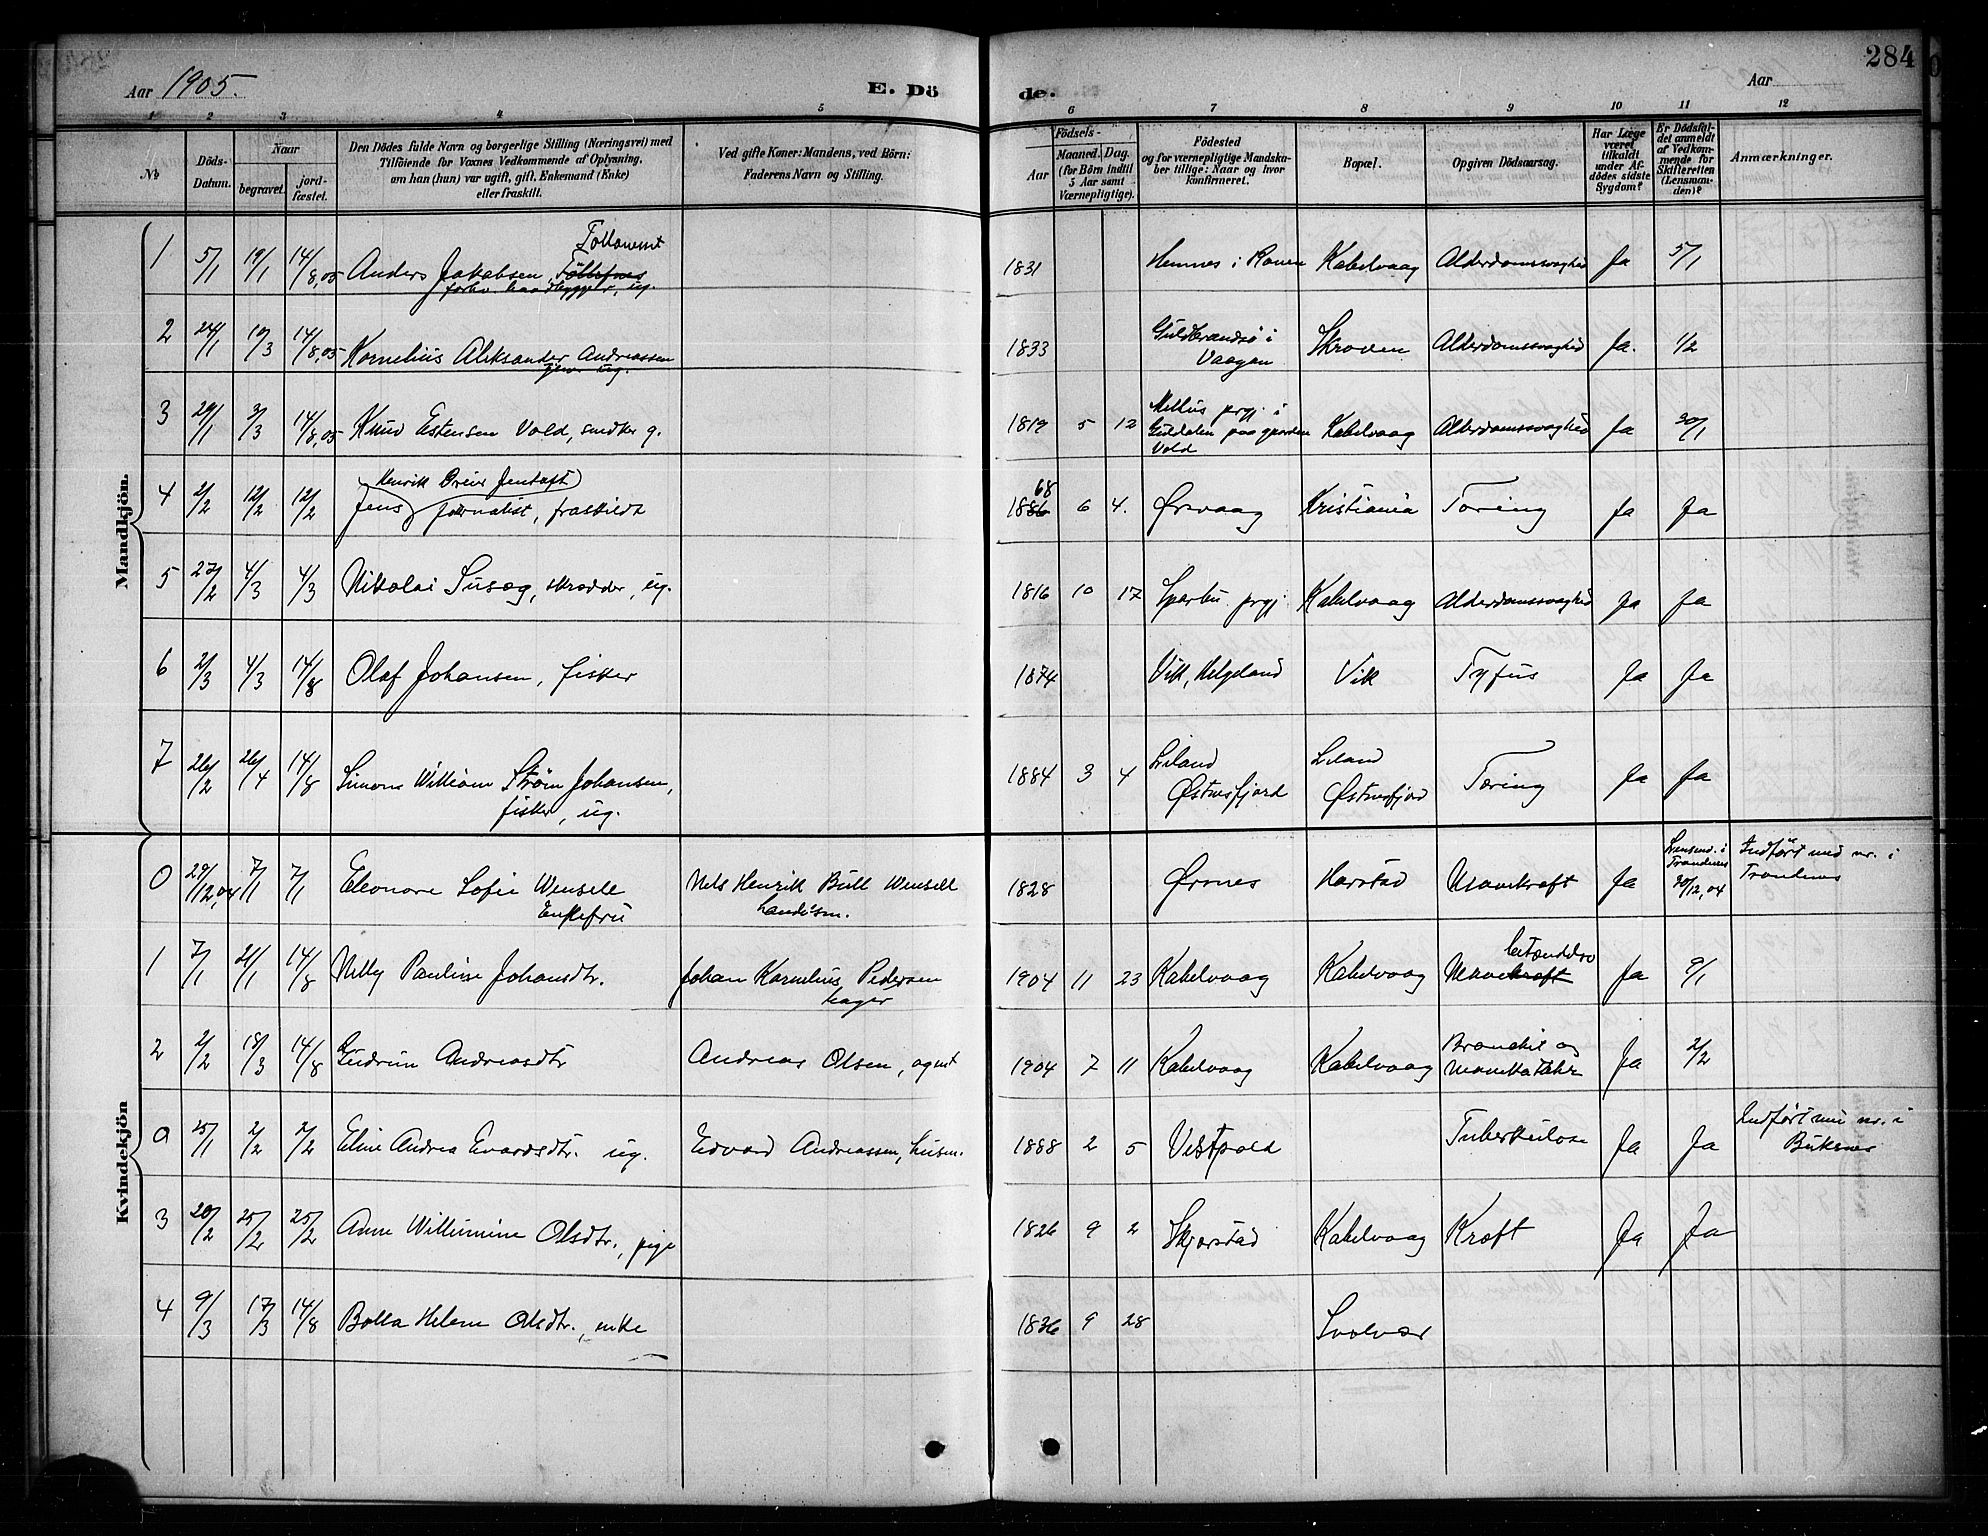 284
Aar 1905.
E. Dö
de.
Aar
1 2 3 4 5
6 7 8 9 10 11 12
No
Döds-Datum.
Naar
begravet.
jord-fæstet.
Den Dödes fulde Navn og borgerlige Stilling (Næringsvei) med
Tilföiende for Voxnes Vedkommende af Oplysning,
om han (hun) var ugift, gift, Enkemand (Enke)
eller fraskilt.
Ved gifte Koner: Mandens, ved Börn:
Faderens Navn og Stilling.
Födsels-
Aar
Maaned. Dag.
(for Börn indtil
5 Aar samt
Værnepligtige).
Födested
og for værnepligtige Mandska-
ber tillige: Naar og hvor
konfirmeret.
Bopæl.
Opgiven Dödsaarsag.
Har Læge
været
tilkaldt
under Af-
dödes sidste
Sygdom?
Er Dödsfal-
det anmeldt
af Vedkom-
mende for
Skifteretten
(Lensman-
den)?
Anmærkninger.
Mandkjön.
1 5/1 19/1 14/8,05 Anders Jakobsen, 1831 Hemnes i Ranen Kabelvaag Alderdomssvaghed Ja 5/1
forhv. baadbygger, ug.
2 24/1 19/3 14/8,05 Kornelius Aleksander Andreassen 1833 Guldbrandsö i Vaagan Skroven Alderdomssvaghed Ja. 1/2
ug.
3 29/1 3/3 14/8,05 Knud Estensen Vold, snedker g. 1819 5 12 Melhus prgj. i Guldalen paa gaarden Vold Kabelvaag Alderdomssvaghed Ja 30/1
4 2/2 12/2 12/2 Jens Henrik Greve Jentoft journalist, fraskildt 1868 6 4. Ørsvaag Kristiania Tæring Ja Ja
5 27/2 4/3 4/3 Nikolai Susæg, skrædder, ug. 1816 10 17 Sparbu prgj. Kabelvaag Alderdomssvaghed Ja Ja
6 2/3 4/3 14/8 Olaf Johansen, fisker 1874 Vik, Helgeland Vik Tyfus Ja Ja
7 26/2 26/4 14/8 Simon William Strøm Johansen, 1884 3 4 Liland Østnesfjord Liland Østnesfjord Tæring Ja Ja
fisker, ug.
Kvindekjön
0 29/12,04 7/1 7/1 Eleonore Sofie Wensell Enkefru Nils Henrik Bull Wensell Landhsm. 1828 Ørsnes Harstad Mavekræft Ja Lensmd. i Trondenes 30/12,04 Indført med nr. i Trondenes
1 7/1 21/1 14/8 Nelly Pauline Johansdtr. Johan Kornelius Pedersen bager 1904 11 23 Kabelvaag Kabelvaag Mavekræft Ja 9/1
2 2/2 18/3 14/8 Gudrun Andreasdtr Andreas Olsen, agent 1904 7 11 Kabelvaag Kabelvaag Bronchit og Mavekatahr Ja 2/2
0 25/1 2/2 2/2 Eline Andrea Evardsdtr. ug. Edvard Andreassen, husm. 1888 2 5 Vestpold Tuberkulose Ja Ja Indført med nr. i Buksnes
3 20/2 25/2 25/2 Anne Willumine Olsdtr., pige 1826 9 2 Skjerstad Kabelvaag Kræft Ja Ja
4 9/3 17/3 14/8 Bolla Helene Olsdtr., enke 1836 9 28 Svolvær